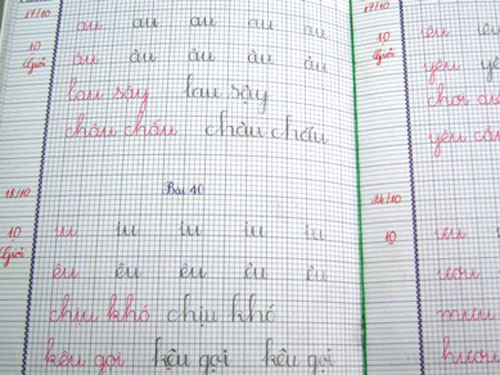 17/10
au au au au au
10
Giỏi
âu âu âu âu âu
lau sậy lau sậy
châu chấu châu chấu
18/10
Bài 40
10
Giỏi
iu iu iu iu iu
êu êu êu êu êu
chịu khó chịu khó
kêu gọi kêu gọi kêu gọi
17/10
iêu
10
Giỏi
yêu
chơi
yêu
24/10
10
ưu
ươu
mưu
hươu